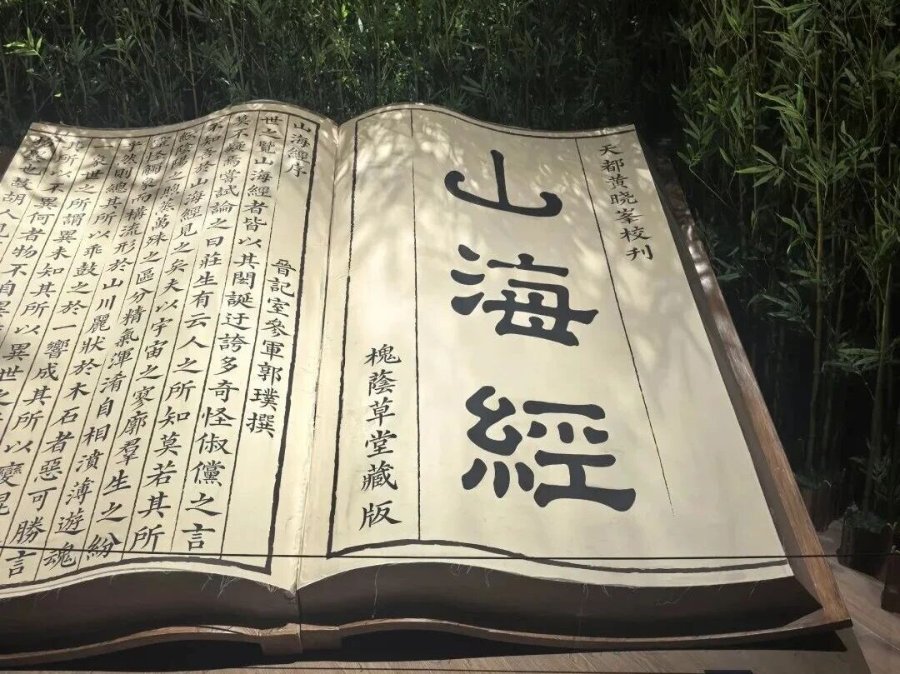 天都黄晓峯校刊
山海經
槐蔭草堂藏版
山海經序
晉記室參軍郭璞撰
世之覽山海經者皆以其閎誕迂誇多奇怪俶儻之言
莫不疑焉嘗試論之曰莊生有云人之所知莫若其所
不知吾於山海經見之矣夫以宇宙之寥廓羣生之紛
陰陽之煦蒸萬殊之區分精氣渾淆自相濆薄遊魂
靈怪觸象而構流形於山川麗狀於木石者惡可勝言
乎然則總其所以乖鼓之於一響成其所以變混
象世之所謂異未知其所以異世之
其所以不異何者物不自異
也故胡人見